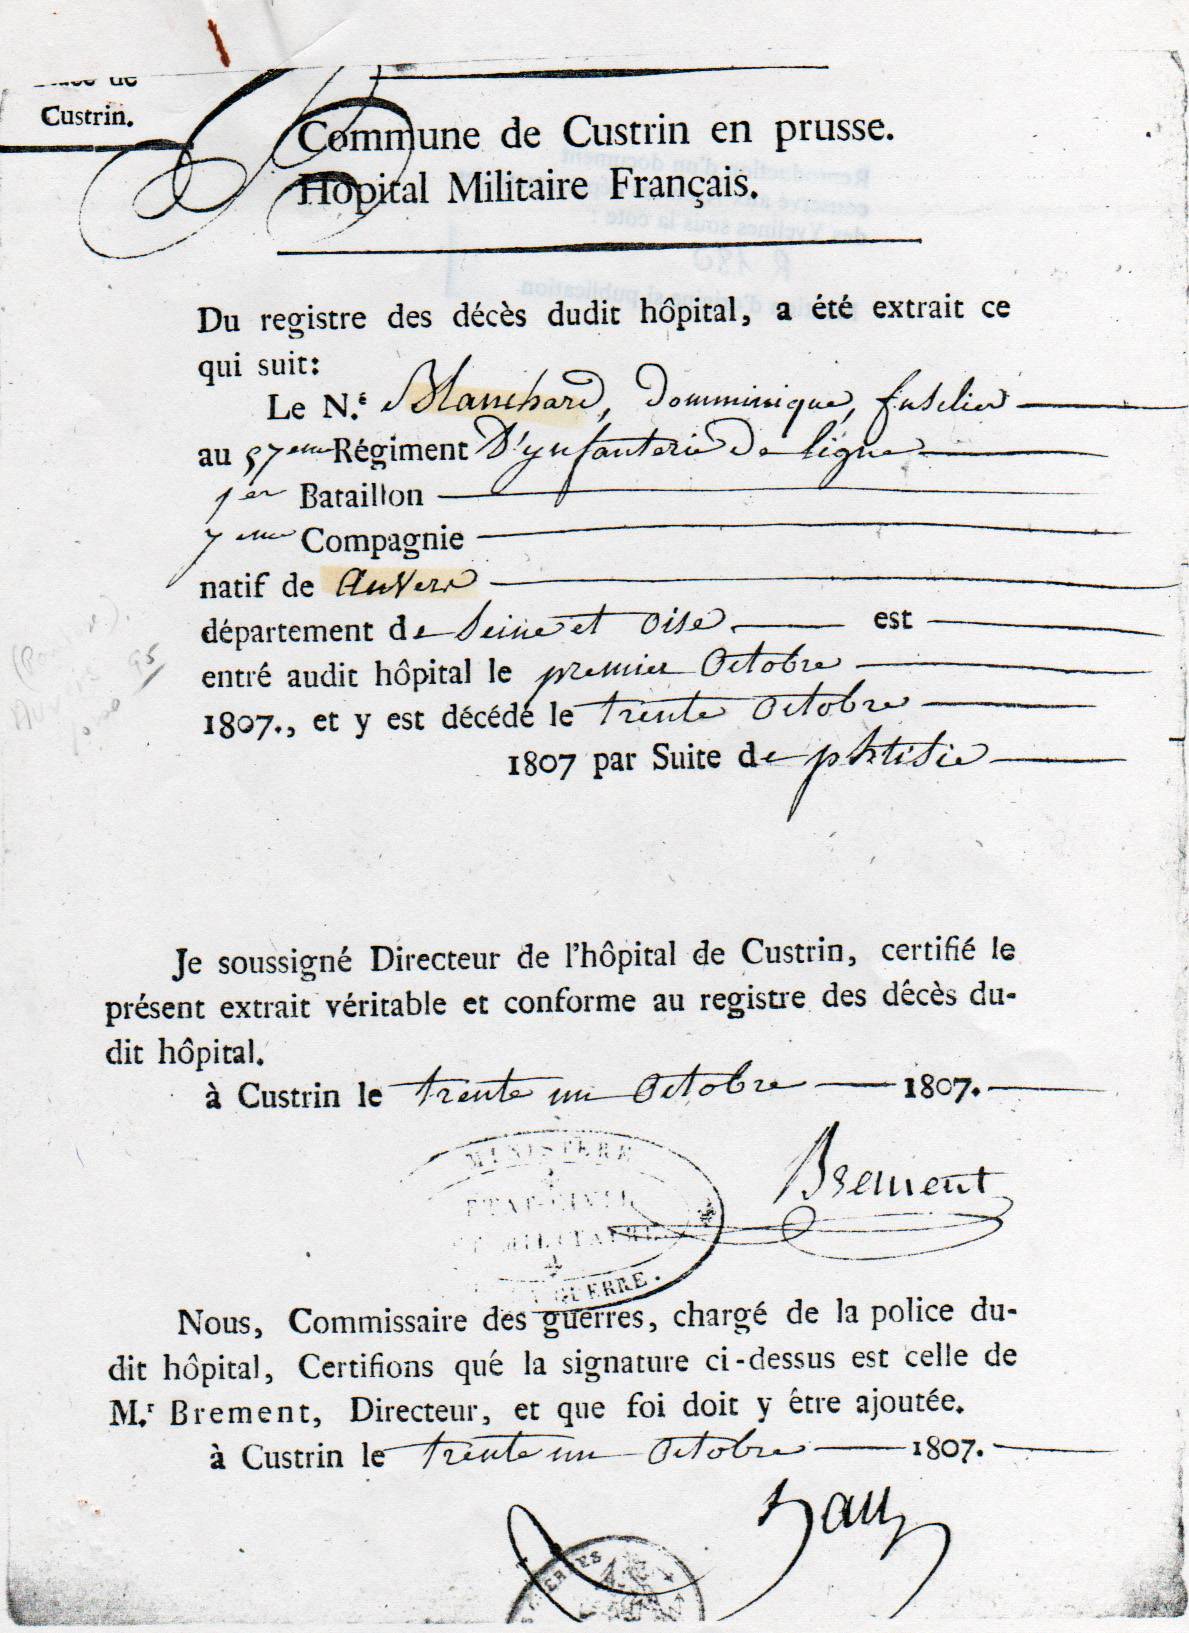 de
Custrin.
Commune de Custrin en prusse.
Hopital Militaire Français.
Du registre des décès dudit hôpital, a été extrait ce
qui suit:
Le N.é Blanchard, Domminique, fuselier
au 57eme Régiment D'ynfanterie De ligne
1er Bataillon
7eme Compagnie
natif de Auvers
département de Seine et Oise est
entré audit hôpital le premier Octobre
1807., et y est décédé le trente Octobre
1807 par Suite de phtisie
Je soussigné Directeur de l'hôpital de Custrin, certifié le
présent extrait véritable et conforme au registre des décès du-
dit hôpital.
à Custrin le trente un Octobre 1807.
Brement
MINISTERE
ETAT-CIVIL
MILITAIRE
GUERRE.
Nous, Commissaire des guerres, chargé de la police du-
dit hôpital, Certifions qué la signature ci-dessus est celle de
M.r Brement, Directeur, et que foi doit y être ajoutée.
à Custrin le trente un Octobre 1807.